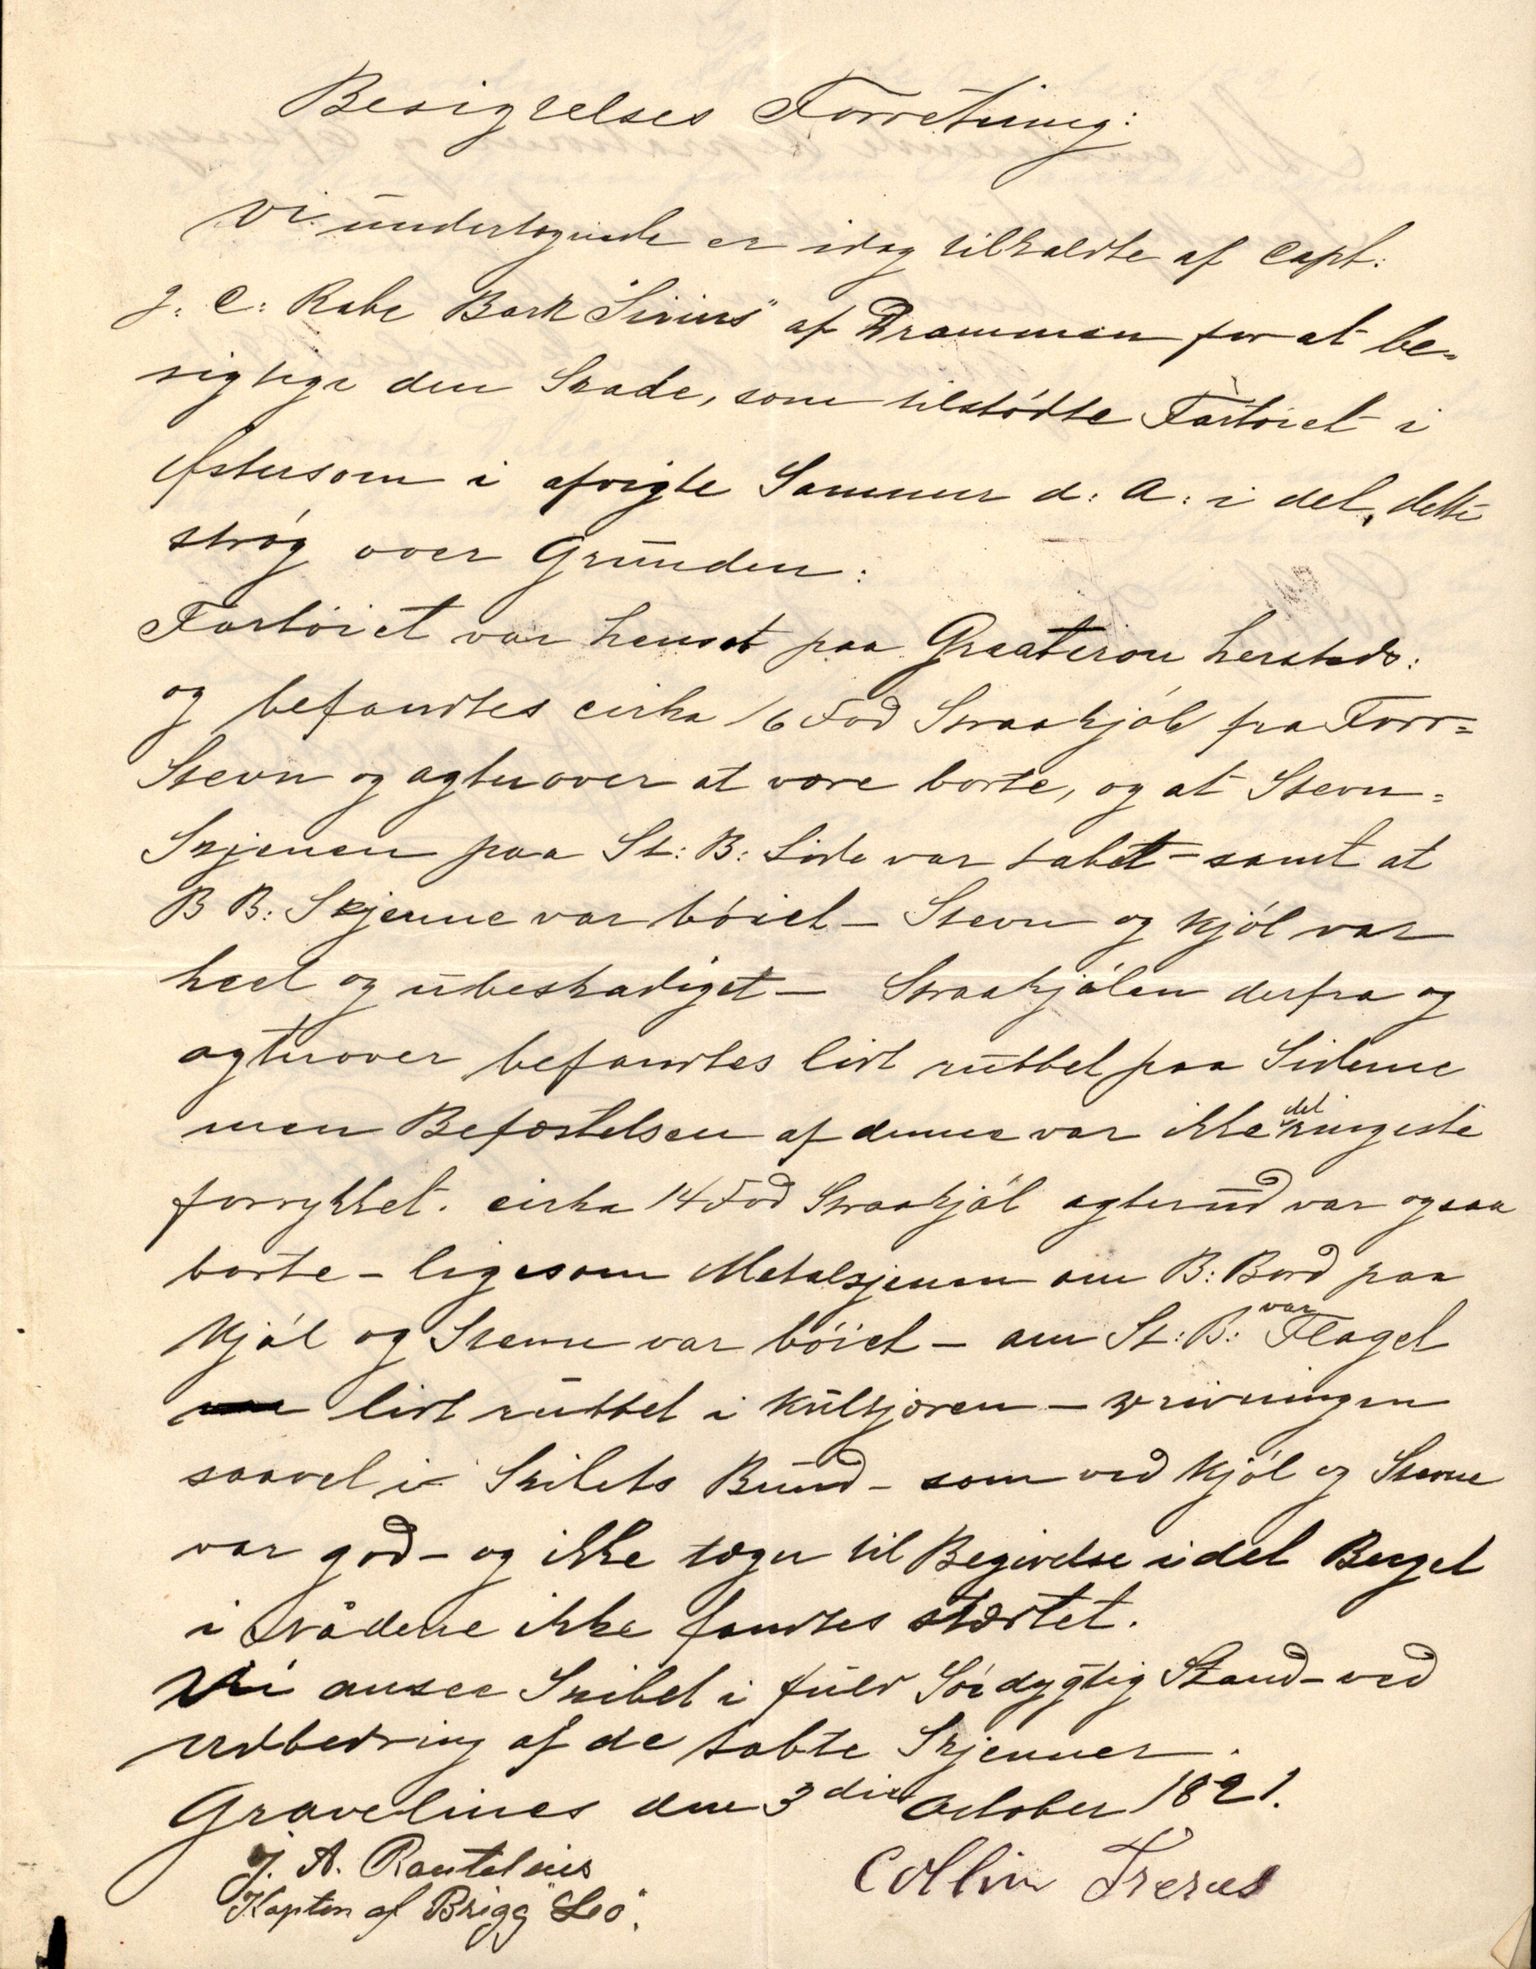 Besigtelses Forretning:
Vi undertegnede er idag tilkaldte af Capt:
J. C: Rabe Bark "Sirius" af Drammen for at be=
sigtige den Skade, som tilstödte Fartöiet i
Østersöen i afvigte Sommer d: A: i det, dette
strög over Grunden:
Fartöiet var henset paa hersteds:
og befandtes cirka 16 Fod Straakjöl fra Forr=
Stevn og agterover at være borte, og at Stevn=
Skjenen paa St: B: Side var tabet - samt at
B B: Skjenne var böiet - Stevn og Kjöl var
heel og ubeskadiget - Straakjölen derfra og
agterover befandtes lidt ruttet paa Siderne
men Befæstelsen af denne var ikke det ringeste
forrykket. cirka 14 Fod Straakjöl agterud var ogsaa
borte - ligesom Metalskjenen om B: Bord paa
Kjöl og Stevn var böiet - om St: B: var Flaget
lidt ruttet i Kulkjæren - Drivningen
saavel i Skibets Bund - som ved Kjöl og Stevne
var god - og ikke tegn til Begivelse idet Beget
i Nådene ikke fandtes stœrtet.
Vi ansee Skibet i fuld Söedygtig Stand - ved
Udbedring af de tabte Skjenner.
Gravelines den 3die October 1891.
J. A. Rantelnies
Kapten af Brigg "Leo".
Collin Freres